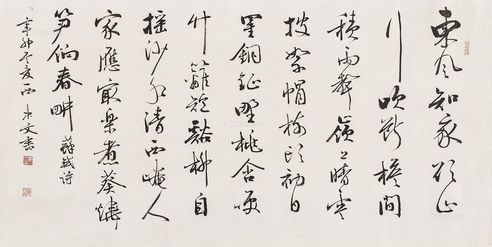 東風知我欲山
行吹斷簷間
積雨聲嶺上晴雲
披絮帽樹頭初日
罣銅鉦野桃含咲
竹籬短谿柳自
搖沙水清西崦人
家應最樂煮葵燒
笋餉春畊 蘇軾詩
辛卯